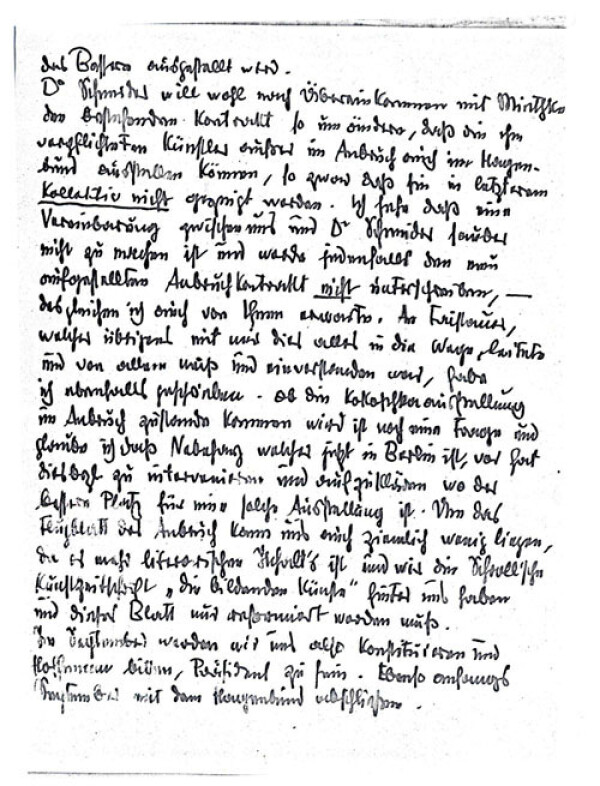 des Bessern ausgestellt wird.
Dr Schneider will wohl nach Übereinkommen mit
den bestehenden Kontrakt so um ändern, daß die ihm
verpflichteten Künstler außer im Anbruch auch im Hagen-
bund ausstellen können, so zwar daß sie in letzterem
Kollektiv nicht gezeigt werden. Ich sehe daß eine
Vereinbarung zwischen uns und Dr Schneider sauber
nicht zu machen ist und werde jedenfalls den neu
aufgestellten Anbruchkontrakt nicht unterschreiben, —
desgleichen ich auch von Ihnen erwarte. An Faistauer,
welcher übrigens mit mir dies alles in die Wege leitete
und von allem muß und einverstanden war, habe
ich ebenfalls geschrieben. Ob die Kokoschkaausstellung
im Anbruch zustande kommen wird ist noch eine Frage und
glaube ich daß Nebehay welcher jetzt in Berlin ist, vor hat
diesbezgl zu intervenieren und aufzuklären wo der
bessere Platz für eine solche Ausstellung ist. Um das
Flugblatt des Anbruch kann uns auch ziemlich wenig liegen,
da es mehr literarischen Inhalt's ist und wir die
Kunstzeitschrift „die bildenden Künste" hinter uns haben
und dieses Blatt nur reformiert werden muß.
Im September werden wir uns also Konstituieren und
Hoffmann bitten, Präsident zu sein. Ebenso anfangs
September mit dem Hagenbund abschließen.